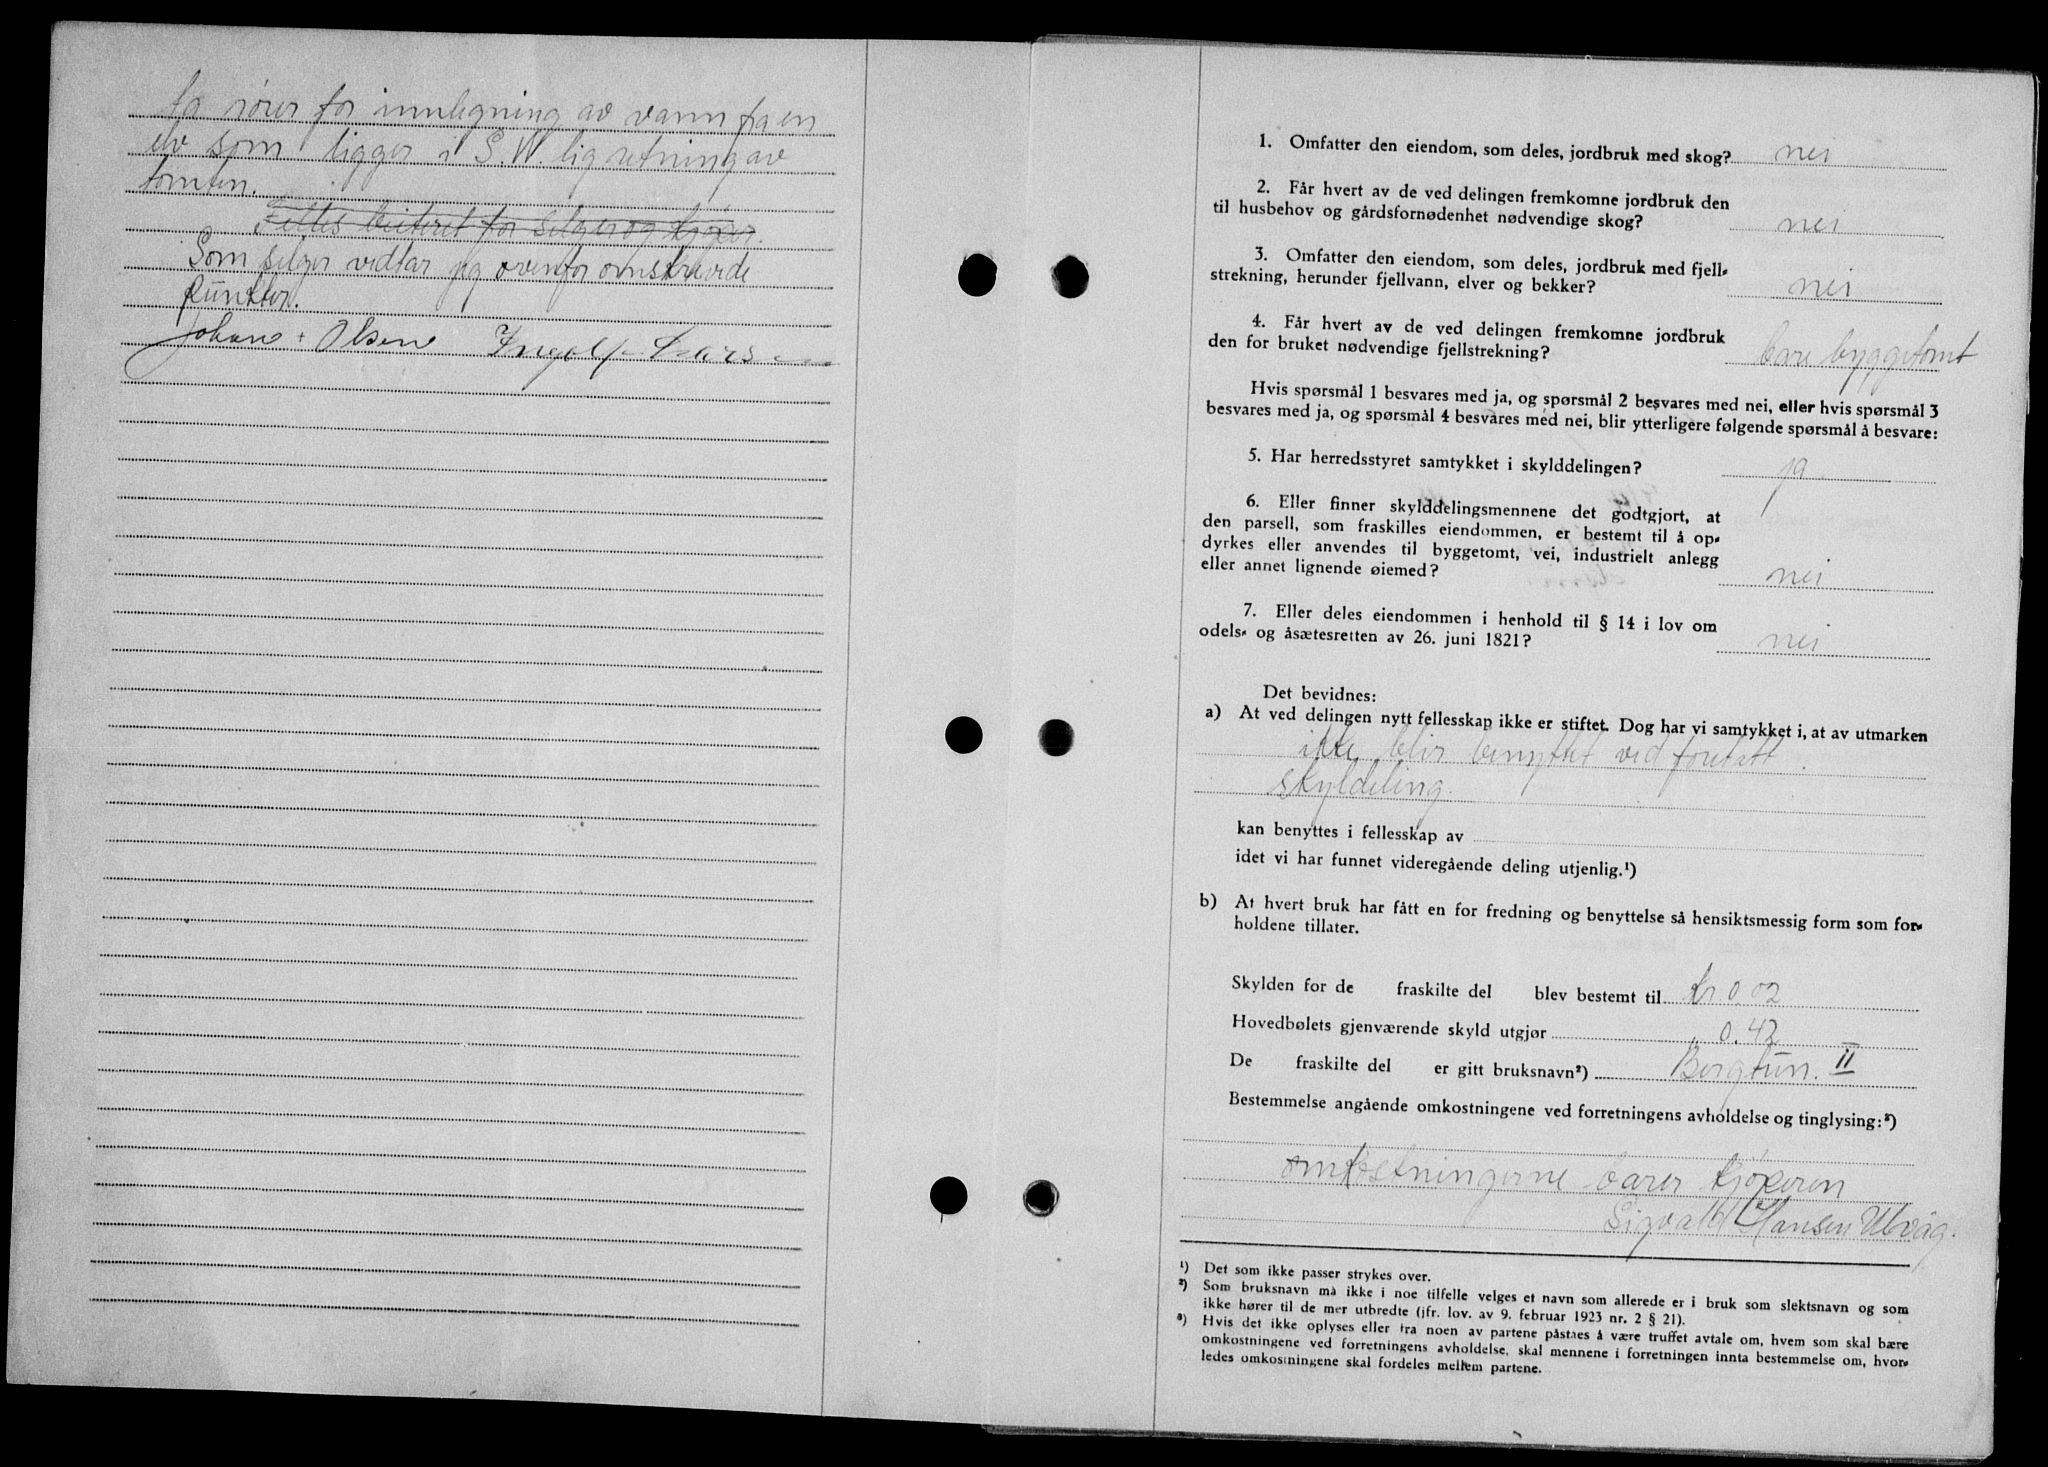 la rörer for innlegning av vann fra en
elv som ligger i S.W. lig retning av
tomten.
Felles beiteret for selger og kjöper.
Som selger vedtar jeg ovenfor omskrevede
punkter.
Johan Olsen Ingolf Lars
1. Omfatter den eiendom, som deles, jordbruk med skog? nei
2. Får hvert av de ved delingen fremkomne jordbruk den
til husbehov og gårdsfornødenhet nødvendige skog? nei
3. Omfatter den eiendom, som deles, jordbruk med fjell-
strekning, herunder fjellvann, elver og bekker? nei
4. Får hvert av de ved delingen fremkomne jordbruk
den for bruket nødvendige fjellstrekning? bare byggetomt
Hvis spørsmål 1 besvares med ja, og spørsmål 2 besvares med nei, eller hvis spørsmål 3
besvares med ja, og spørsmål 4 besvares med nei, blir ytterligere følgende spørsmål å besvare:
5. Har herredsstyret samtykket i skylddelingen? ja
6. Eller finner skylddelingsmennene det godtgjort, at
den parsell, som fraskilles eiendommen, er bestemt til å op-
dyrkes eller anvendes til byggetomt, vei, industrielt anlegg
eller annet lignende øiemed? nei
7. Eller deles eiendommen i henhold til § 14 i lov om
odels- og åsætesretten av 26. juni 1821? nei
Det bevidnes:
a) At ved delingen nytt fellesskap ikke er stiftet. Dog har vi samtykket i, at av utmarken
ikke blir benyttet ved foretatt
skyldeling.
kan benyttes i fellesskap av
idet vi har funnet videregående deling utjenlig.¹)
b) At hvert bruk har fått en for fredning og benyttelse så hensiktsmessig form som for-
holdene tillater.
Skylden for de fraskilte del blev bestemt til kr 0.02
Hovedbølets gjenværende skyld utgjør 0.42
De fraskilte del er gitt bruksnavn²) Bergtun. II
Bestemmelse angående omkostningene ved forretningens avholdelse og tinglysing:³)
omkostningerne barer kjöperen
Sigvald Hansen Ulvåg.
¹) Det som ikke passer strykes over.
²) Som bruksnavn må ikke i noe tilfelle velges et navn som allerede er i bruk som slektsnavn og som
ikke hører til de mer utbredte (jfr. lov. av 9. februar 1923 nr. 2 § 21).
³) Hvis det ikke oplyses eller fra noen av partene påstaes å være truffet avtale om, hvem som skal bære
omkostningene ved forretningens avholdelse, skal mennene i forretningen innta bestemmelse om, hvor-
ledes omkostningene skal fordeles mellem partene.